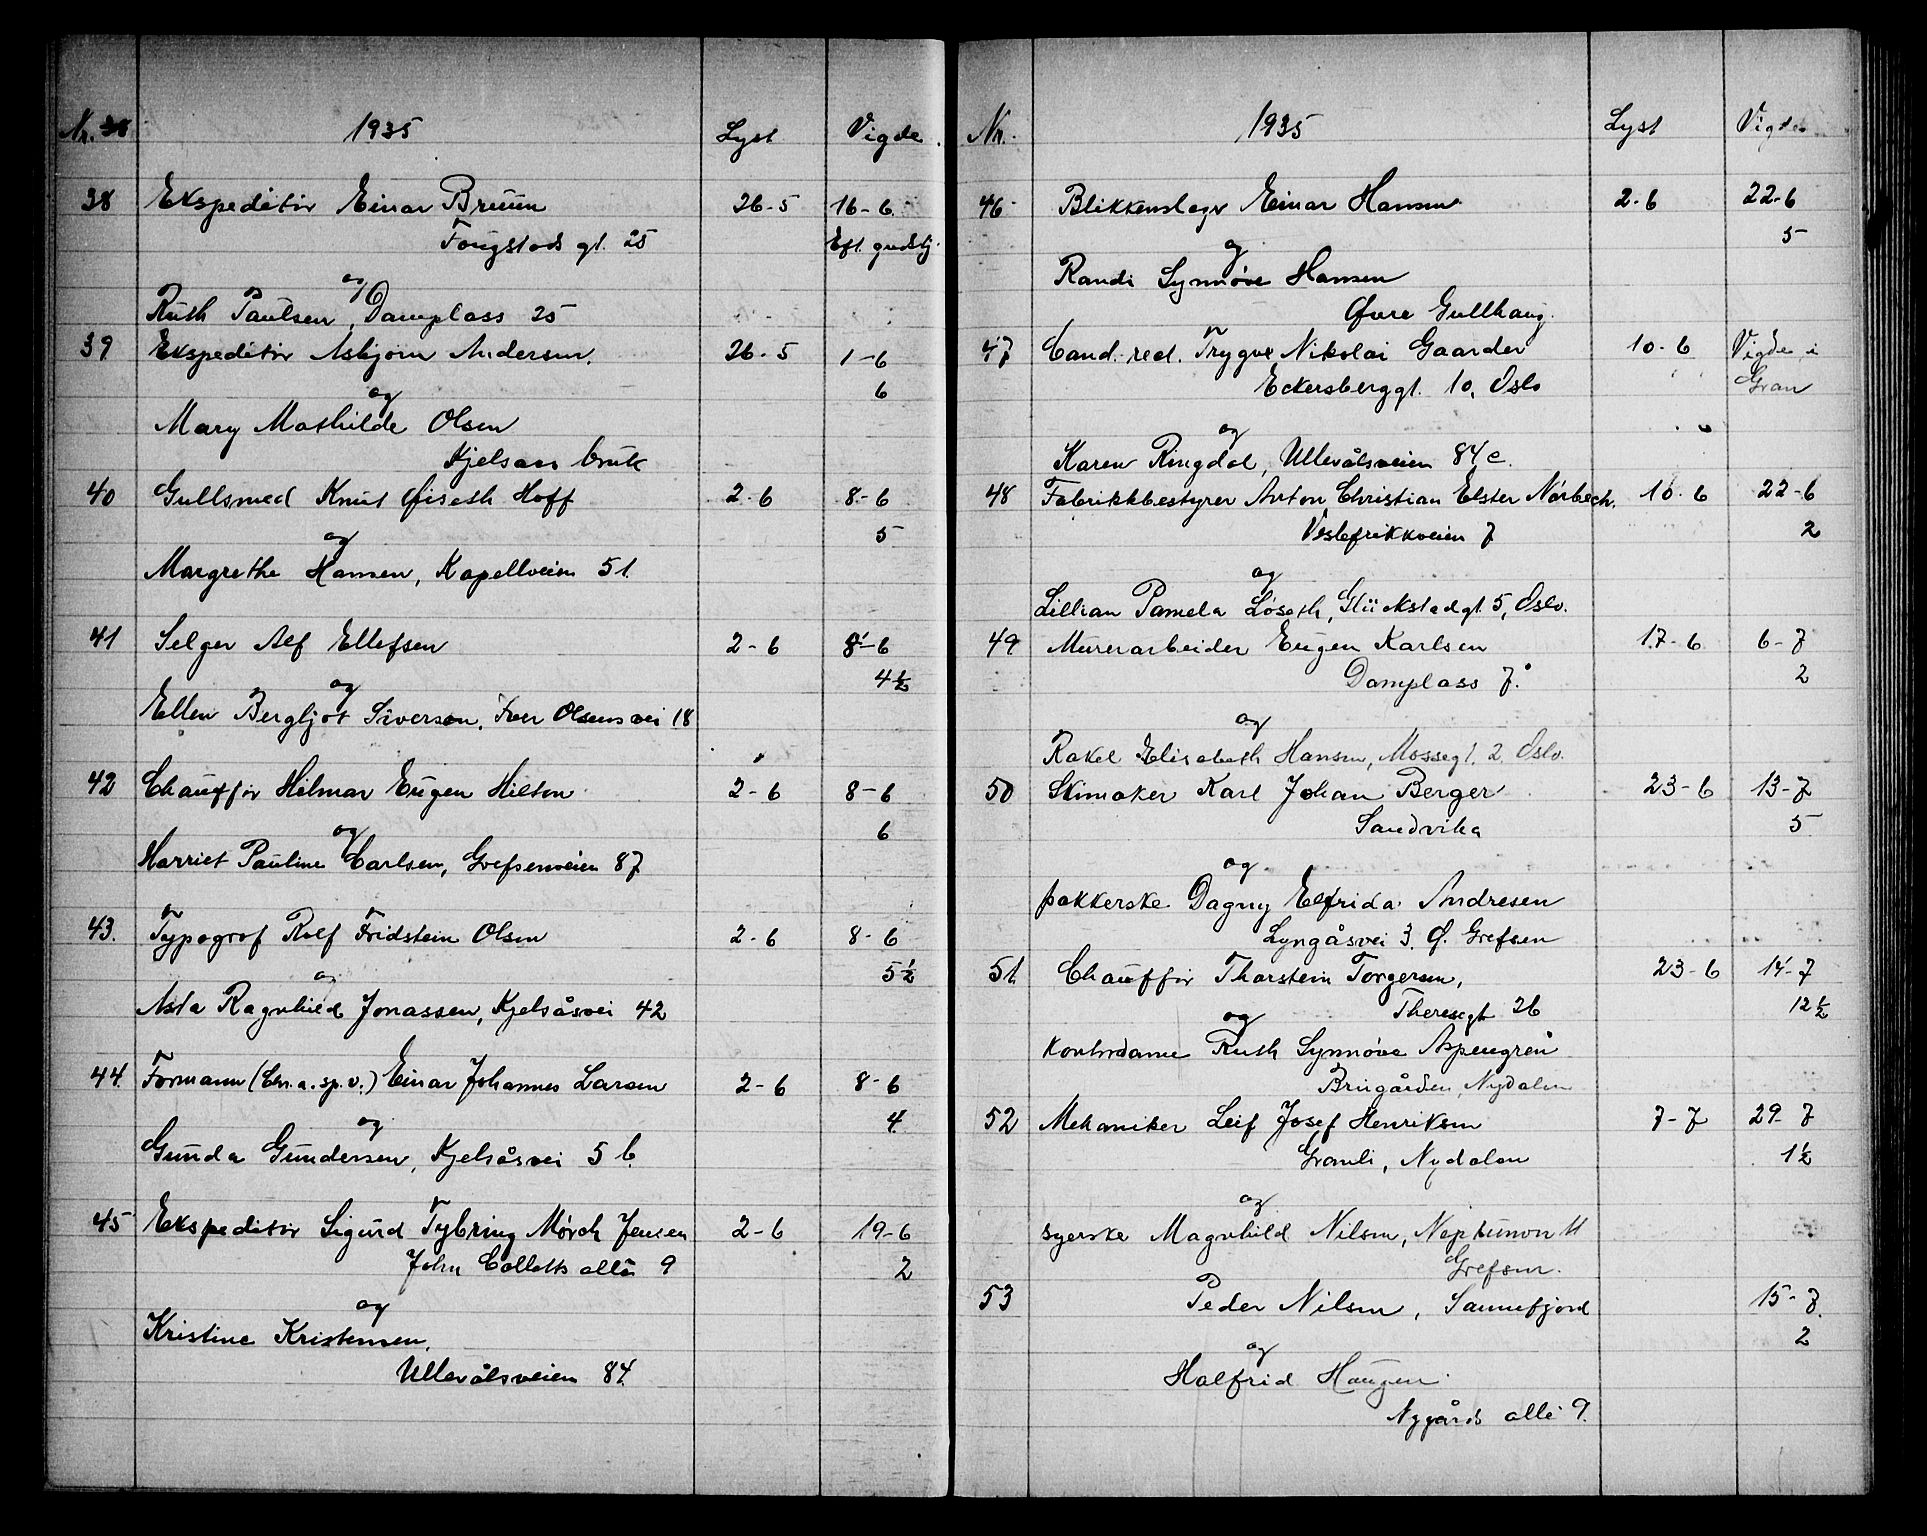 Nr. 38 1935 Lyst Vigde
38 Ekspeditør Einar Bruun 26-5 16-6
Fougstads gt. 25 Eft. gudstj.
og
Ruth Paulsen, Damplass 25
39 Ekspeditør Asbjørn Andersen. 26-5 1-6
6
og
Mary Mathilde Olsen
Kjelsaas bruk
40 Gullsmed Knut Øiseth Hoff 2-6 8-6
5
og
Margrethe Hansen, Kapellveien 51.
41 Selger Alf Ellefsen 2-6 8-6
4½
og
Ellen Bergljot Siverson, Iver Olsens vei 18
42 Chauffør Hilmar Eugen Hilton 2-6 8-6
6
og
Harriet Pauline Carlsen, Grefsenveien 87
43. Typograf Rolf Fridstein Olsen 2-6 8-6
5½
og
Asta Ragnhild Jonassen, Kjelsåsvei 42
44. Formann (Chr. a. sp. v.) Einar Johannes Larsen 2-6 8-6
4.
og
Gunda Gundersen, Kjelsåsvei 5 b.
45 Ekspeditør Sigurd Tybring Mørch Jensen 2-6 19-6
John Colletts allé 9 2
og
Kristine Kristensen,
Ullevålsveien 84.
Nr. 1935 Lyst Vigde
46 Blikkenslager Einar Hansen 2-6 22-6
5
og
Randi Synnøve Hansen
Øvre Gullhaug.
47 Cand. red. Trygve Nikolai Gaarder 10-6 Vigde i
Eckersberggt. 10, Oslo Gran
og
Karen Ringdal, Ullevålsveien 84 c.
48 Fabrikkbestyrer Anton Christian Elster Nørbech. 10-6 22-6
Veslefrikkveien 7 2
og
Lillian Pamela Løseth, Glückstadgt 5, Oslo.
49 Murerarbeider Eugen Karlsen 17-6 6-7
Damplass 7. 2
og
Rakel Elisabeth Hansen, Mossegt. 2, Oslo.
50 Skimaker Karl Johan Berger 23-6 13-7
Sandvika 5
og
pakkerske Dagny Elfrida Andresen
Lyngåsvei 3. Ø. Grefsen
51. Chauffør Thorstein Torgersen, 23-6 14-7
og Theresegt 26 12½
Kontordame Ruth Synnøve Aspengren
Brugården, Nydalen
52 Mekaniker Leif Josef Henriksen 7-7 29-7
Granli, Nydalen 1½
og
syerske Magnhild Nilsen, Neptunvn 11
Grefsen.
53 Peder Nilsen, Sannefjord 15-7.
2
og
Halfrid Haugen
Nygårds allé 9.